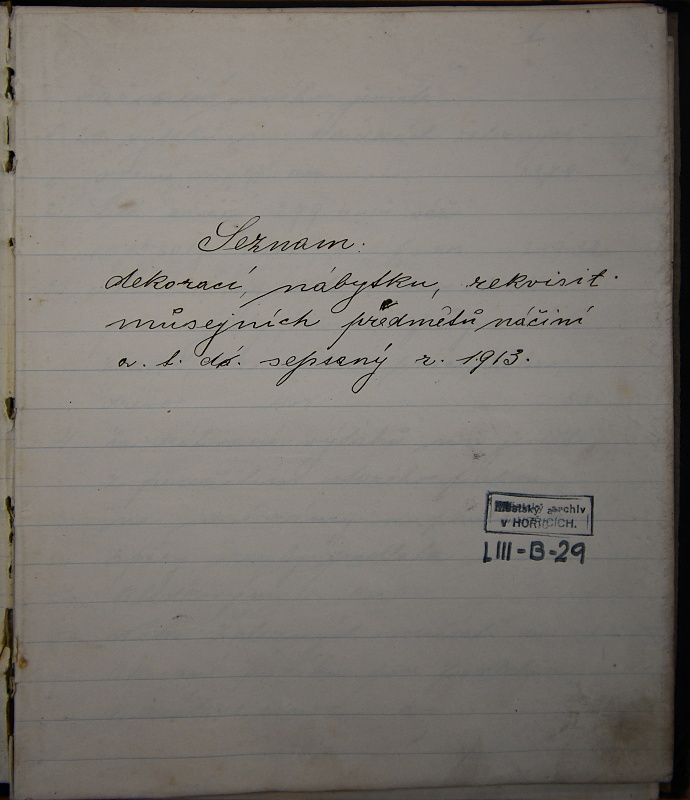 Seznam:
dekorací, nábytku, rekvisit
můsejních předmětů náčiní
a. t. d. sepsaný r. 1913.
Městský archiv
v HOŘICÍCH.
LIII-B-29